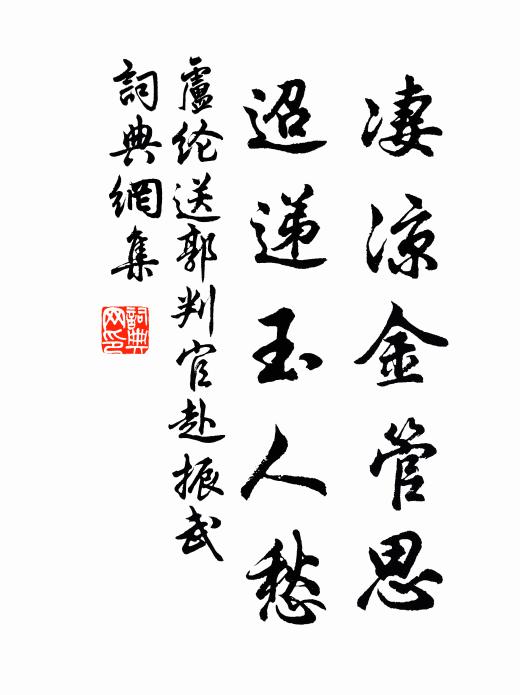 凄凉金管思
迢递玉人愁
盧纶送郭判官赴振武
詞典網集
詞典网印